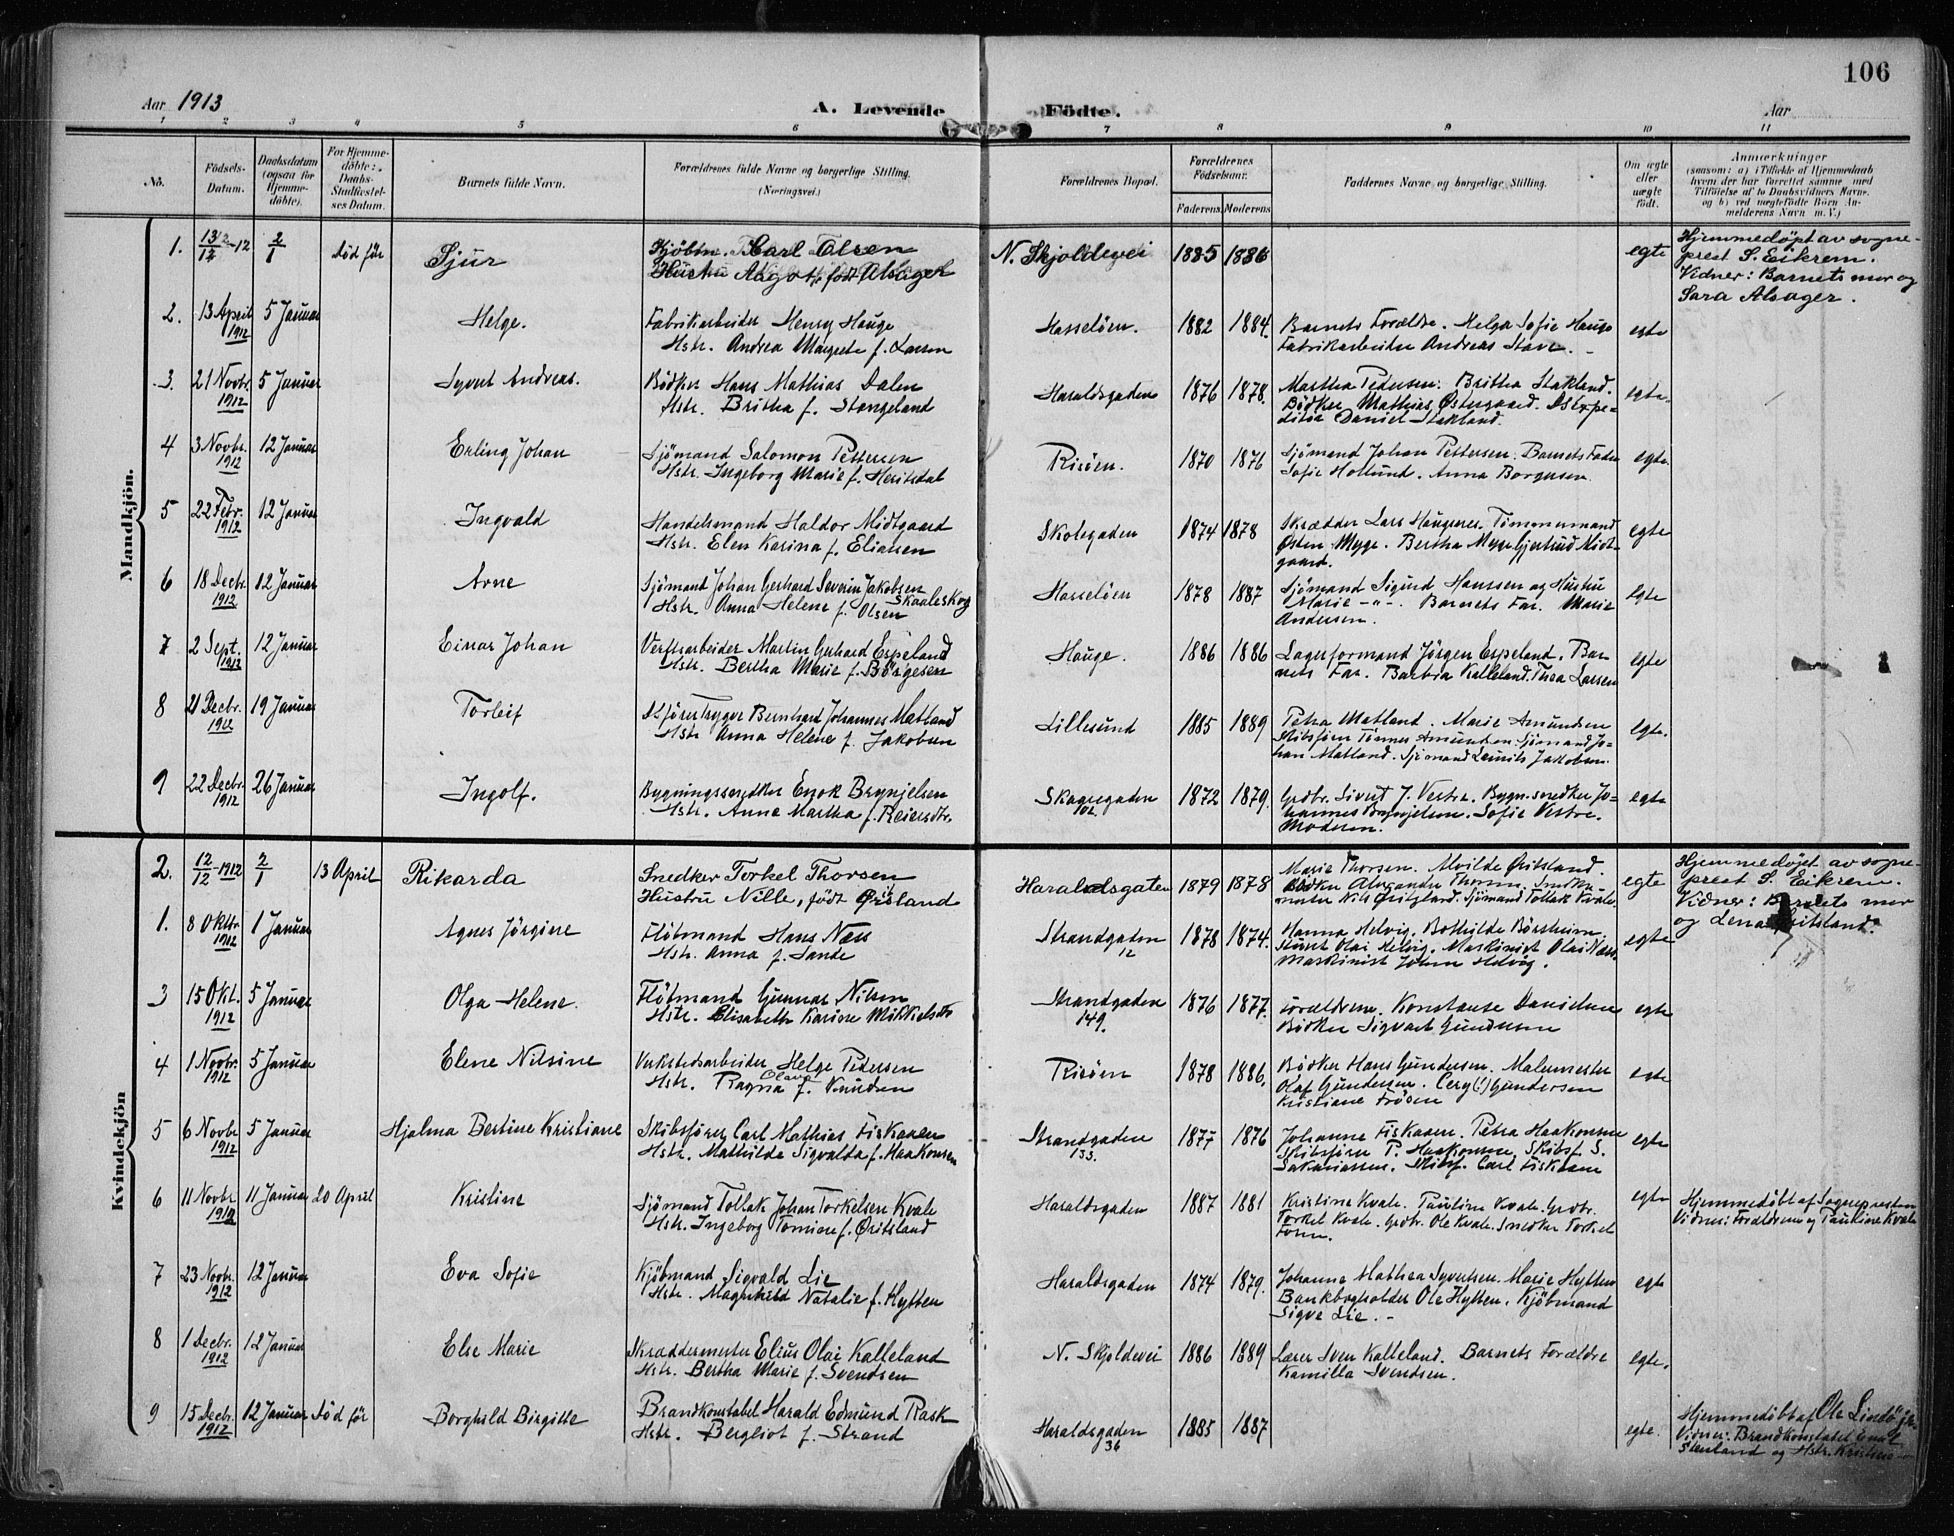 106
Aar 1913
A. Levende Födte.
Aar
1 2 3 4 5 6 7 8 9 10 11
No.
Födsels-
Datum.
Daabsdatum
(ogsaa for
Hjemme-
döbte).
For Hjemme-
döbte:
Daabs-
Stadfæstel-
ses Datum.
Barnets fulde Navn.
Forældrenes fulde Navne og borgerlige Stilling.
(Næringsvei.)
Forældrenes Bopæl.
Forældrenes
Födselsaar.
Faderens Moderens
Faddernes Navne og borgerlige Stilling.
Om ægte
eller
uægte
födt.
Anmærkninger
(saasom: a) i Tilfælde af Hjemmedaab
hvem der har forrettet samme med
Tilföielse af to Daabsvidners Navne,
og b) ved uægtefödte Börn An-
melderens Navn m. V.)
Mandkjön.
1. 13/12-12 2/1 död før Sjur
Kjöbm. Carl Olsen
Hustru Aagot, født Alsager
N. Skjoldevei 1885 1886 egte
Hjemmedøpt av sogne-
prest S. Eikrem.
Vidner: Barnets mor og
Sara Alsager.
2. 13 April 1912 5 Januar Helge.
Fabrikarbeider Henry Hauge
Hstr. Andrea Margrete f. Larsen
Hasseløen. 1882 1884. egte
Barnets Forældre. Helga Sofie Hauge
Fabrikarbeider Andreas Stave.
3. 21 Novbr. 1912 5 Januar Syvert Andreas.
Bödker Hans Mathias Dalen
Hstr. Britha f. Stangeland
Haraldsgaden 1876 1878. egte.
Martha Pedersen. Britha Stakland.
Bödker Mathias Østergaard. Expe-
ditör Daniel Stakland.
4 3 Novbr. 1912 12 Januar Erling Johan
Sjömand Salomon Pettersen
Hstr. Ingeborg Marie f.
Risöen. 1870 1876 egte.
Sjömand Johan Pettersen. Barnets Fader
Sofie Hollund. Anna Borgersen
5 22 Febr. 1912 12 Januar Ingvald
Handelsmand Haldor Midtgaard
Hstr. Elen Karina f. Eliassen
Skolegaden 1874 1878 egte
Skrædder Lars Haugenes. Tømmermand
Østen Myge. Bertha Myge Gjertrud Midt-
gaard.
6 18 Decbr. 1912 12 Januar Arne
Sjömand Johan Gerhard Severin Jakobsen Skaaleskog
Hstr. Anna Helene f. Olsen
Hasselöen 1878 1887 egte
Sjömand Sigurd Hanssen og Hustru
Marie -"-. Barnets Far. Marie
Andersen.
7 2 Sept. 1912 12 Januar Einar Johan
Verftsarbeider Martin Gerhard Espeland
Hstr. Bertha Marie f. Börgesen
Hauge. 1886 1886 egte
Lagerformand Jörgen Espeland. Bar-
nets Far. Barbra Kalleland. Thea Larsen
8 21 Decbr. 1912 19 Januar Torleif
Trygve Bernhard Johannes Matland
Hstr Anna Helene f. Jakobsen
Lillesund 1885 1889 egte.
Petra Matland. Marie Amundsen
Skibsförer Tönnes Amundsen. Sjömand Jo-
han Matland. Sjömand Lauritz Jakobsen.
9 22 Decbr. 1912 26 Januar Ingolf.
Bygningssnedker Enok Brynjelsen
Hstr. Anne Martha f. Reiersdtr.
Skaaregaden 102. 1872 1879. egte
Grdbr. Sivert J. Vestre. Bygn. snedker Jo-
hannes Brynjelsen. Sofie Vestre.
Moderen.
Kvindekjön
2. 12/12-1912 2/1 13 April Rikarda
Snedker Torkel Thorsen
Hustru Nille, født Øritsland
Haraldsgaten 1879 1878 egte
Marie Thorsen. Alvilde Øritsland.
Bödker Alexander Thorsen. Snedker-
mester Nils Øritsland. Sjömand Tollak Kvale.
Hjemmedøpt av sogne-
prest S. Eikrem.
Vidner: Barnets mor
og Lena Øritsland.
1. 8 Oktbr. 1912 1 Januar Agnes Jörgine
Flöbmand Hans Næss
Hstr. Anna f. Sande
Strandgaden 12 1878 1874. egte
Hanna Helvig. Bothilde Börsheim.
Stuert Olai Helvig. Maskinist Olai Næss.
Maskinist Johan Helvig.
3 15 Okt. 1912 5 Januar Olga Helene.
Flöbmand Gunnar Nilsen
Hstr. Elisabeth Karine Mikkelsdtr
Strandgaden 149. 1876 1877. egte
Forældrene. Konstanse Danielsen
Bödker Sigvart Gundersen
4 1 Novbr. 1912 5 Januar Elene Nilsine
Verkstedsarbeider Helge Pedersen
Hstr. Ragna Olava f. Knudsen
Risöen 1878 1886. egte
Bödker Hans Gundersen. Malermester
Olaf Gundersen. Cery(?) Gundersen
Kristiane Frösen
5 6 Novbr 1912 5 Januar Hjalma Bertine Kristiane
Skibsförer Carl Mathias Fiskaaen
Hstr. Mathilde Sigvalda f. Haakonsen
Strandgaden 133. 1877 1876 egte
Johanne Fiskaaen. Petra Haakonsen
Skibsförer P. Haakonsen. Skibsf. S.
Sakariassen. Skibsf. Carl Fiskaaen
6 11 Novbr 1912 11 Januar 20 April Kristine
Sjömand Tollak Johan Torkelsen Kvale
Hstr. Ingeborg Tomine f. Øritsland
Haraldsgaden 1887 1881 egte
Kristine Kvale. Pauline Kvale. Grdbr.
Torkel Kvale. Grdbr. Ole Kvale. Snedker Torkel
Hjemmedöbt af Sognepresten
Vidner: Forældrene og Pauline Kvale
7 23 Novbr. 1912 12 Januar Eva Sofie
Kjöbmand Sigvald Lie
Hstr. Magnhild Natalie f. Hytten
Haraldsgaden 1874 1879. egte
Johanne Mathea Syvertsen. Marie Hytten
Bankbogholder Ole Hytten. Kjöbmand
Sigve Lie. -
8 1 Decbr. 1912 12 Januar Else Marie
Skræddermester Elius Olai Kalleland
Hstr. Bertha Marie f. Svendsen
N. Skjoldevei 1886 1889 egte.
Lærer Sven Kalleland. Barnets Forældre
Kamilla Svendsen.
9 15 Decbr. 1912 12 Januar Död för Borghild Birgitte
Brandkonstabel Harald Edmund Rask
Hstr. Bergliot f. Strand
Haraldsgaden 36 1885 1887 egte.
Hjemmedöbt af Ole Lindö
Vidner: Brandkonstabel
Stenland og Hstr. Kristine